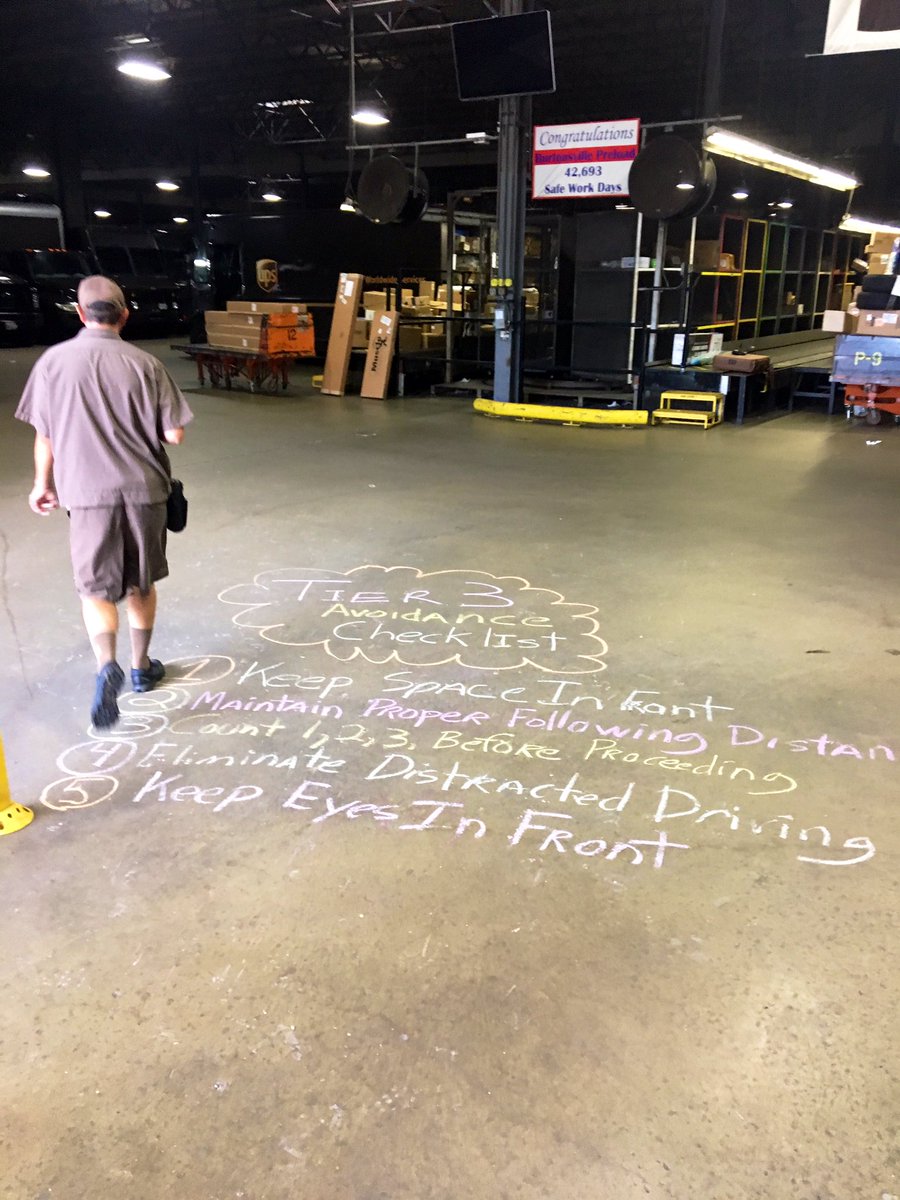 Congratulations
Burtonsville Preload
42,693
Safe Work Days
ups
Worldwide Services
12
P-9
TIER 3
Avoidance
Checklist
1 Keep Space In Front
2 Maintain Proper Following Distan
3 Count 1, 2, 3, Before Proceeding
4 Eliminate Distracted Driving
5 Keep Eyes In Front